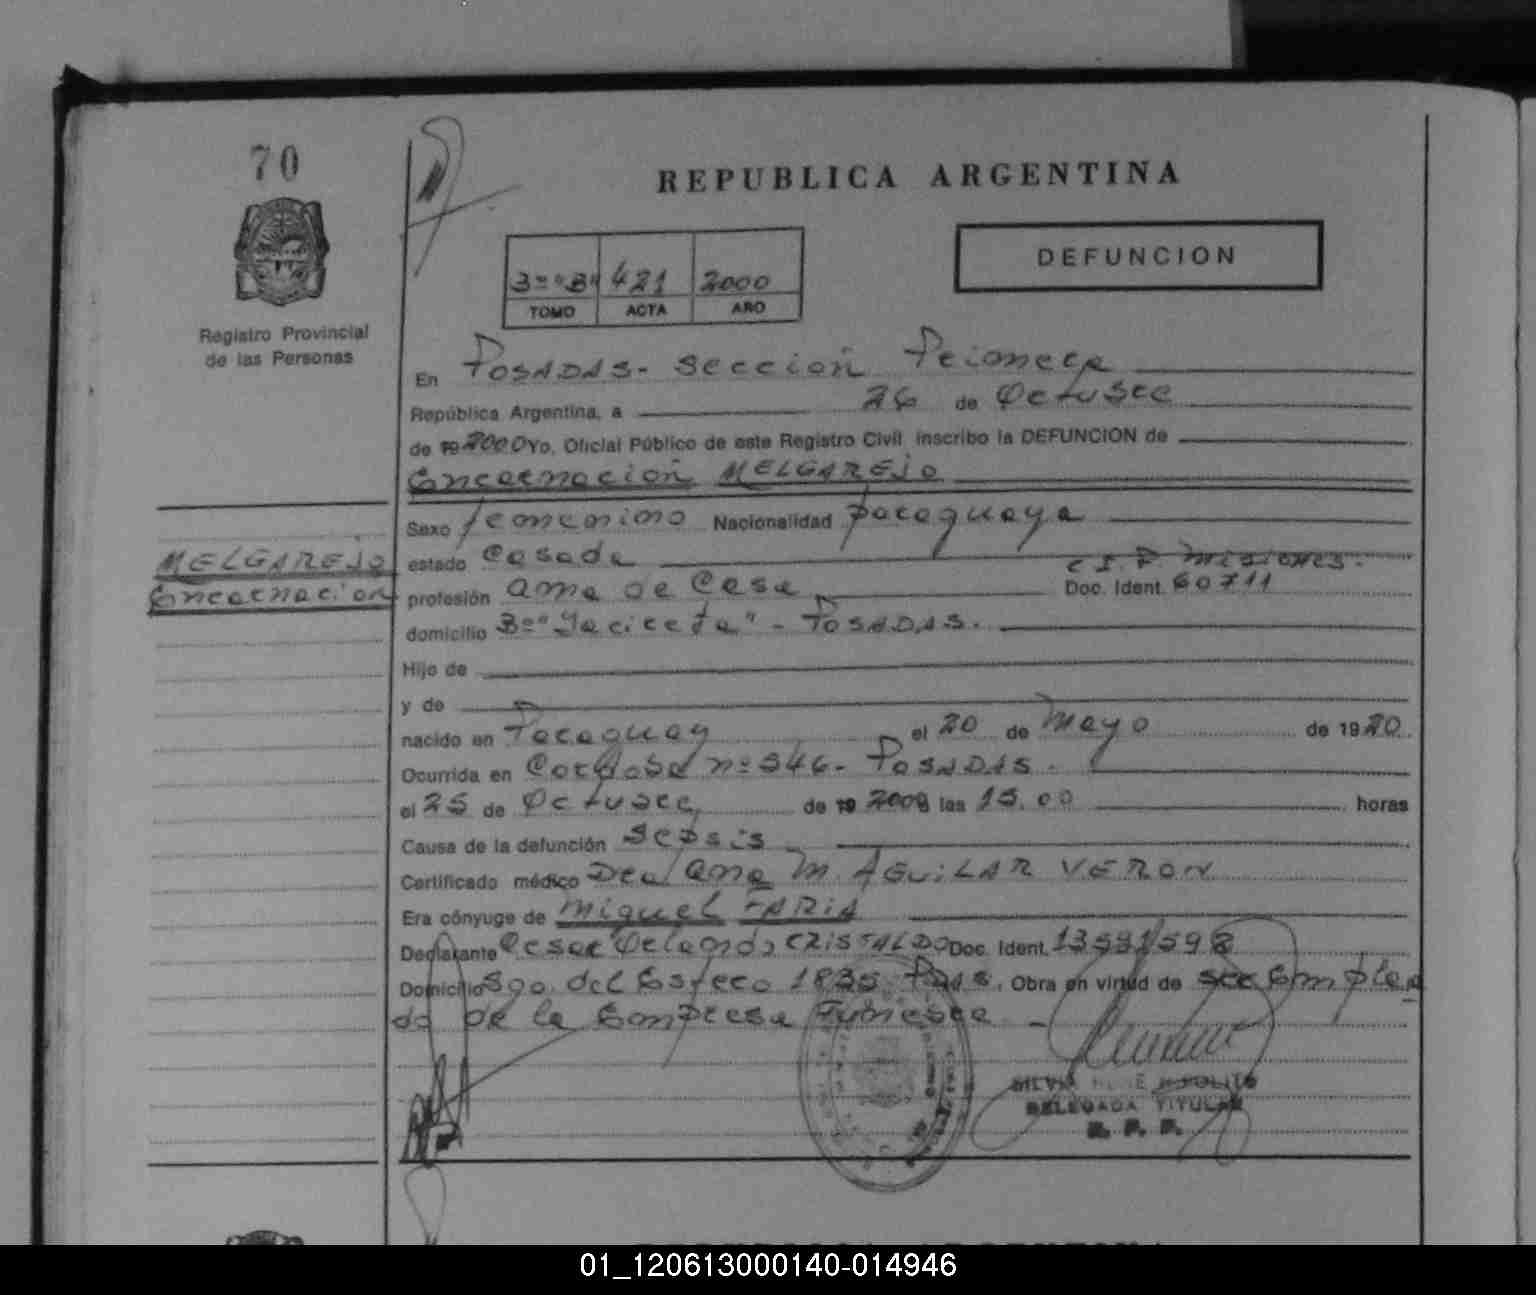 70
REPUBLICA ARGENTINA
3º "B" 421 2000
TOMO ACTA AÑO
DEFUNCION
Registro Provincial
de las Personas
En POSADAS - Sección Primera
República Argentina, a 26 de Octubre
de 19 2000 Yo, Oficial Público de este Registro Civil, inscribo la DEFUNCION de
Encarnación MELGAREJO
Sexo femenino Nacionalidad paraguaya
MELGAREJO
Encarnación
estado Casada C.I.P. Misiones.
profesión ama de Casa Doc. Ident. 60711
domicilio Bº "Yacireta" - POSADAS.
Hijo de
y de
nacido en Paraguay el 20 de Mayo de 1920
Ocurrida en Cordoba nº 546 - POSADAS.
el 25 de Octubre, de 19 2000 las 15.00 horas
Causa de la defunción Sepsis
Certificado médico Dra. Ana M. AGUILAR VERON
Era cónyuge de Miguel FARIA
Declarante Cesar Orlando CRISTALDO Doc. Ident. 13591598
Domicilio Sgo. del Estero 1835 Pdas. Obra en virtud de ser Emplea
do de la Empresa Funebre
SILVIA RENE HIPOLITO
DELEGADA TITULAR
R. P. P.
01_120613000140-014946